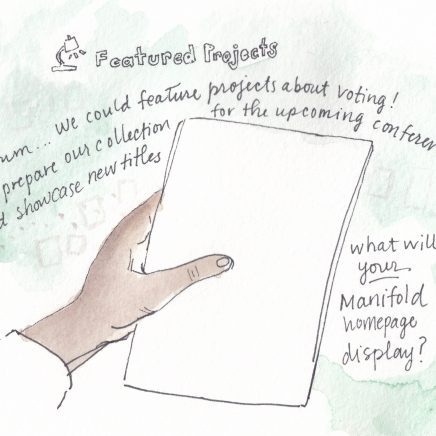 Featured Projects
um... we could feature projects about voting!
prepare our collection for the upcoming conferen
d showcase new titles
what will
your
Manifold
homepage
display?